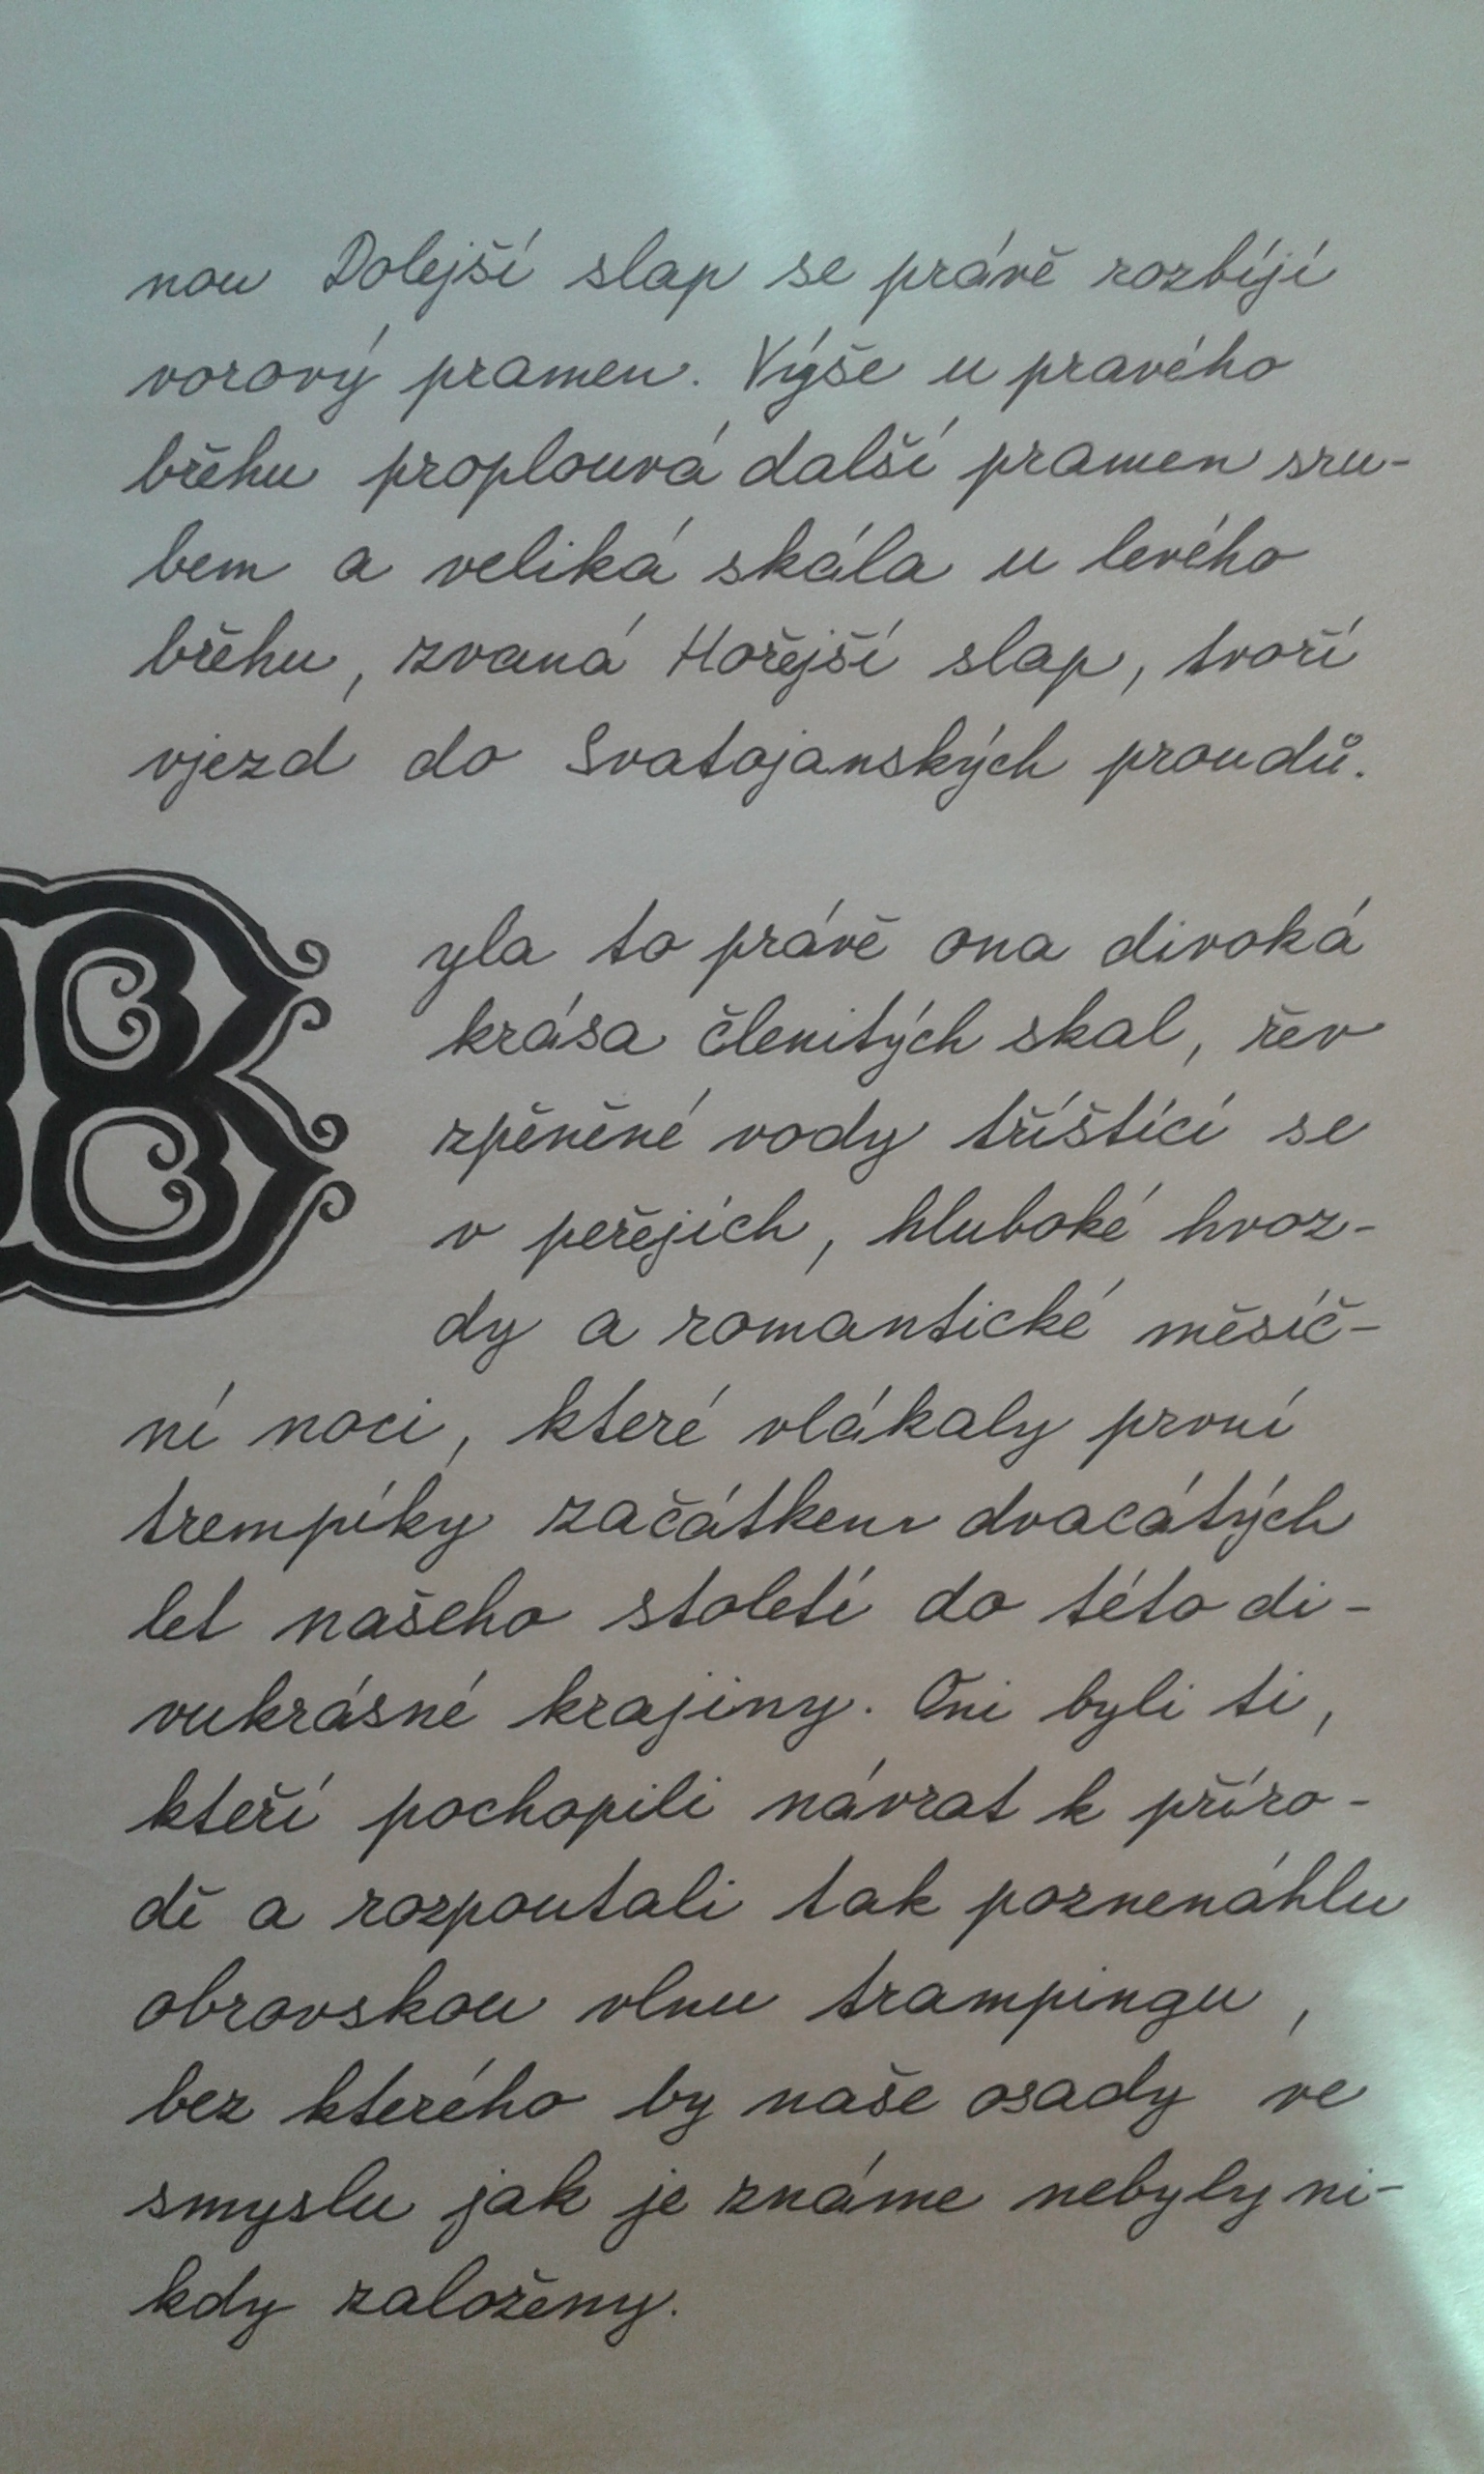 nou Dolejší slap se právě rozbíjí
vorový pramen. Výše u pravého
břehu proplouvá další pramen sru-
bem a veliká skála u levého
břehu, zvaná Hořejší slap, tvoří
vjezd do Svatojanských proudů.
Byla to právě ona divoká
krása členitých skal, řev
zpěněné vody tříštící se
v peřejích, hluboké hvoz-
dy a romantické měsíč-
ní noci, které vlákaly první
trempíky začátkem dvacátých
let našeho století do této di-
vukrásné krajiny. Oni byli ti,
kteří pochopili návrat k příro-
dě a rozpoutali tak poznenáhlu
obrovskou vlnu trampingu,
bez kterého by naše osady ve
smyslu jak je známe nebyly ni-
kdy založeny.